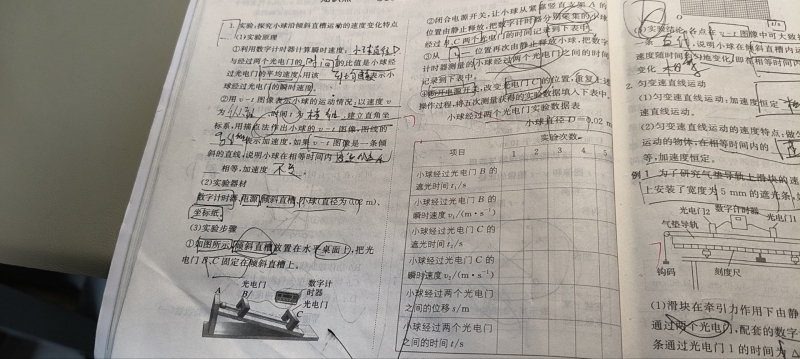 1. 实验:探究小球沿倾斜直槽运动的速度变化特点
(1)实验原理
①利用数字计时器计算瞬时速度:小球直径D
与经过两个光电门的时间的比值是小球经
过光电门的平均速度,用该表示小
球经过光电门的瞬时速度.
②用v-t图像表示小球的运动情况:以速度v
为纵轴,时间t为横轴,建立直角坐
标系,用描点法作出小球的v-t图像,图线的
表示加速度,如果v-t图像是一条倾
斜的直线,说明小球在相等时间内
相等,加速度不变.
(2)实验器材
数字计时器、电源、倾斜直槽、小球(直径为0.02 m)、
坐标纸.
(3)实验步骤
①如图所示,倾斜直槽放置在水平桌面上,把光
电门B、C固定在倾斜直槽上.
光电门
数字计
时器
光电门
A
B
C
②闭合电源开关,让小球从紧靠竖直支架A的
位置由静止释放,把数字计时器分别采集的小球
经过B、C两个光电门的时间记录到下表中.
③从位置再次由静止释放小球,把数字
计时器测量的小球经过两个光电门之间的时间
记录到下表中.
④断开电源开关,改变光电门C的位置,重复上述
操作过程,将五次测量获得的实验数据填入下表中.
小球经过两个光电门实验数据表
小球直径D=0.02 m
实验次数
项目
1 2 3 4 5
小球经过光电门B的
遮光时间t₁/s
小球经过光电门B的
瞬时速度v₁/(m·s⁻¹)
小球经过光电门C的
遮光时间t₂/s
小球经过光电门C的
瞬时速度v₂/(m·s⁻¹)
小球经过两个光电门
之间的位移s/m
小球经过两个光电门
之间的时间t/s
(3)实验结论:各点在v-t图像中可大致
一条直线,说明小球在倾斜直槽内运
速度随时间均匀地变化,即在相等时间内
变化相等
2. 匀变速直线运动
(1)匀变速直线运动:加速度恒定
速直线运动.
(2)匀变速直线运动的速度特点:做
运动的物体,在相等时间内的
等,加速度恒定.
例1 为了研究气垫导轨上滑块的速
上安装了宽度为5 mm的遮光条,
光电门2 数字计时器 光电门1
气垫导轨
钩码
刻度尺
(1)滑块在牵引力作用下由静
通过两个光电门,配套的数字
条通过光电门1的时间为